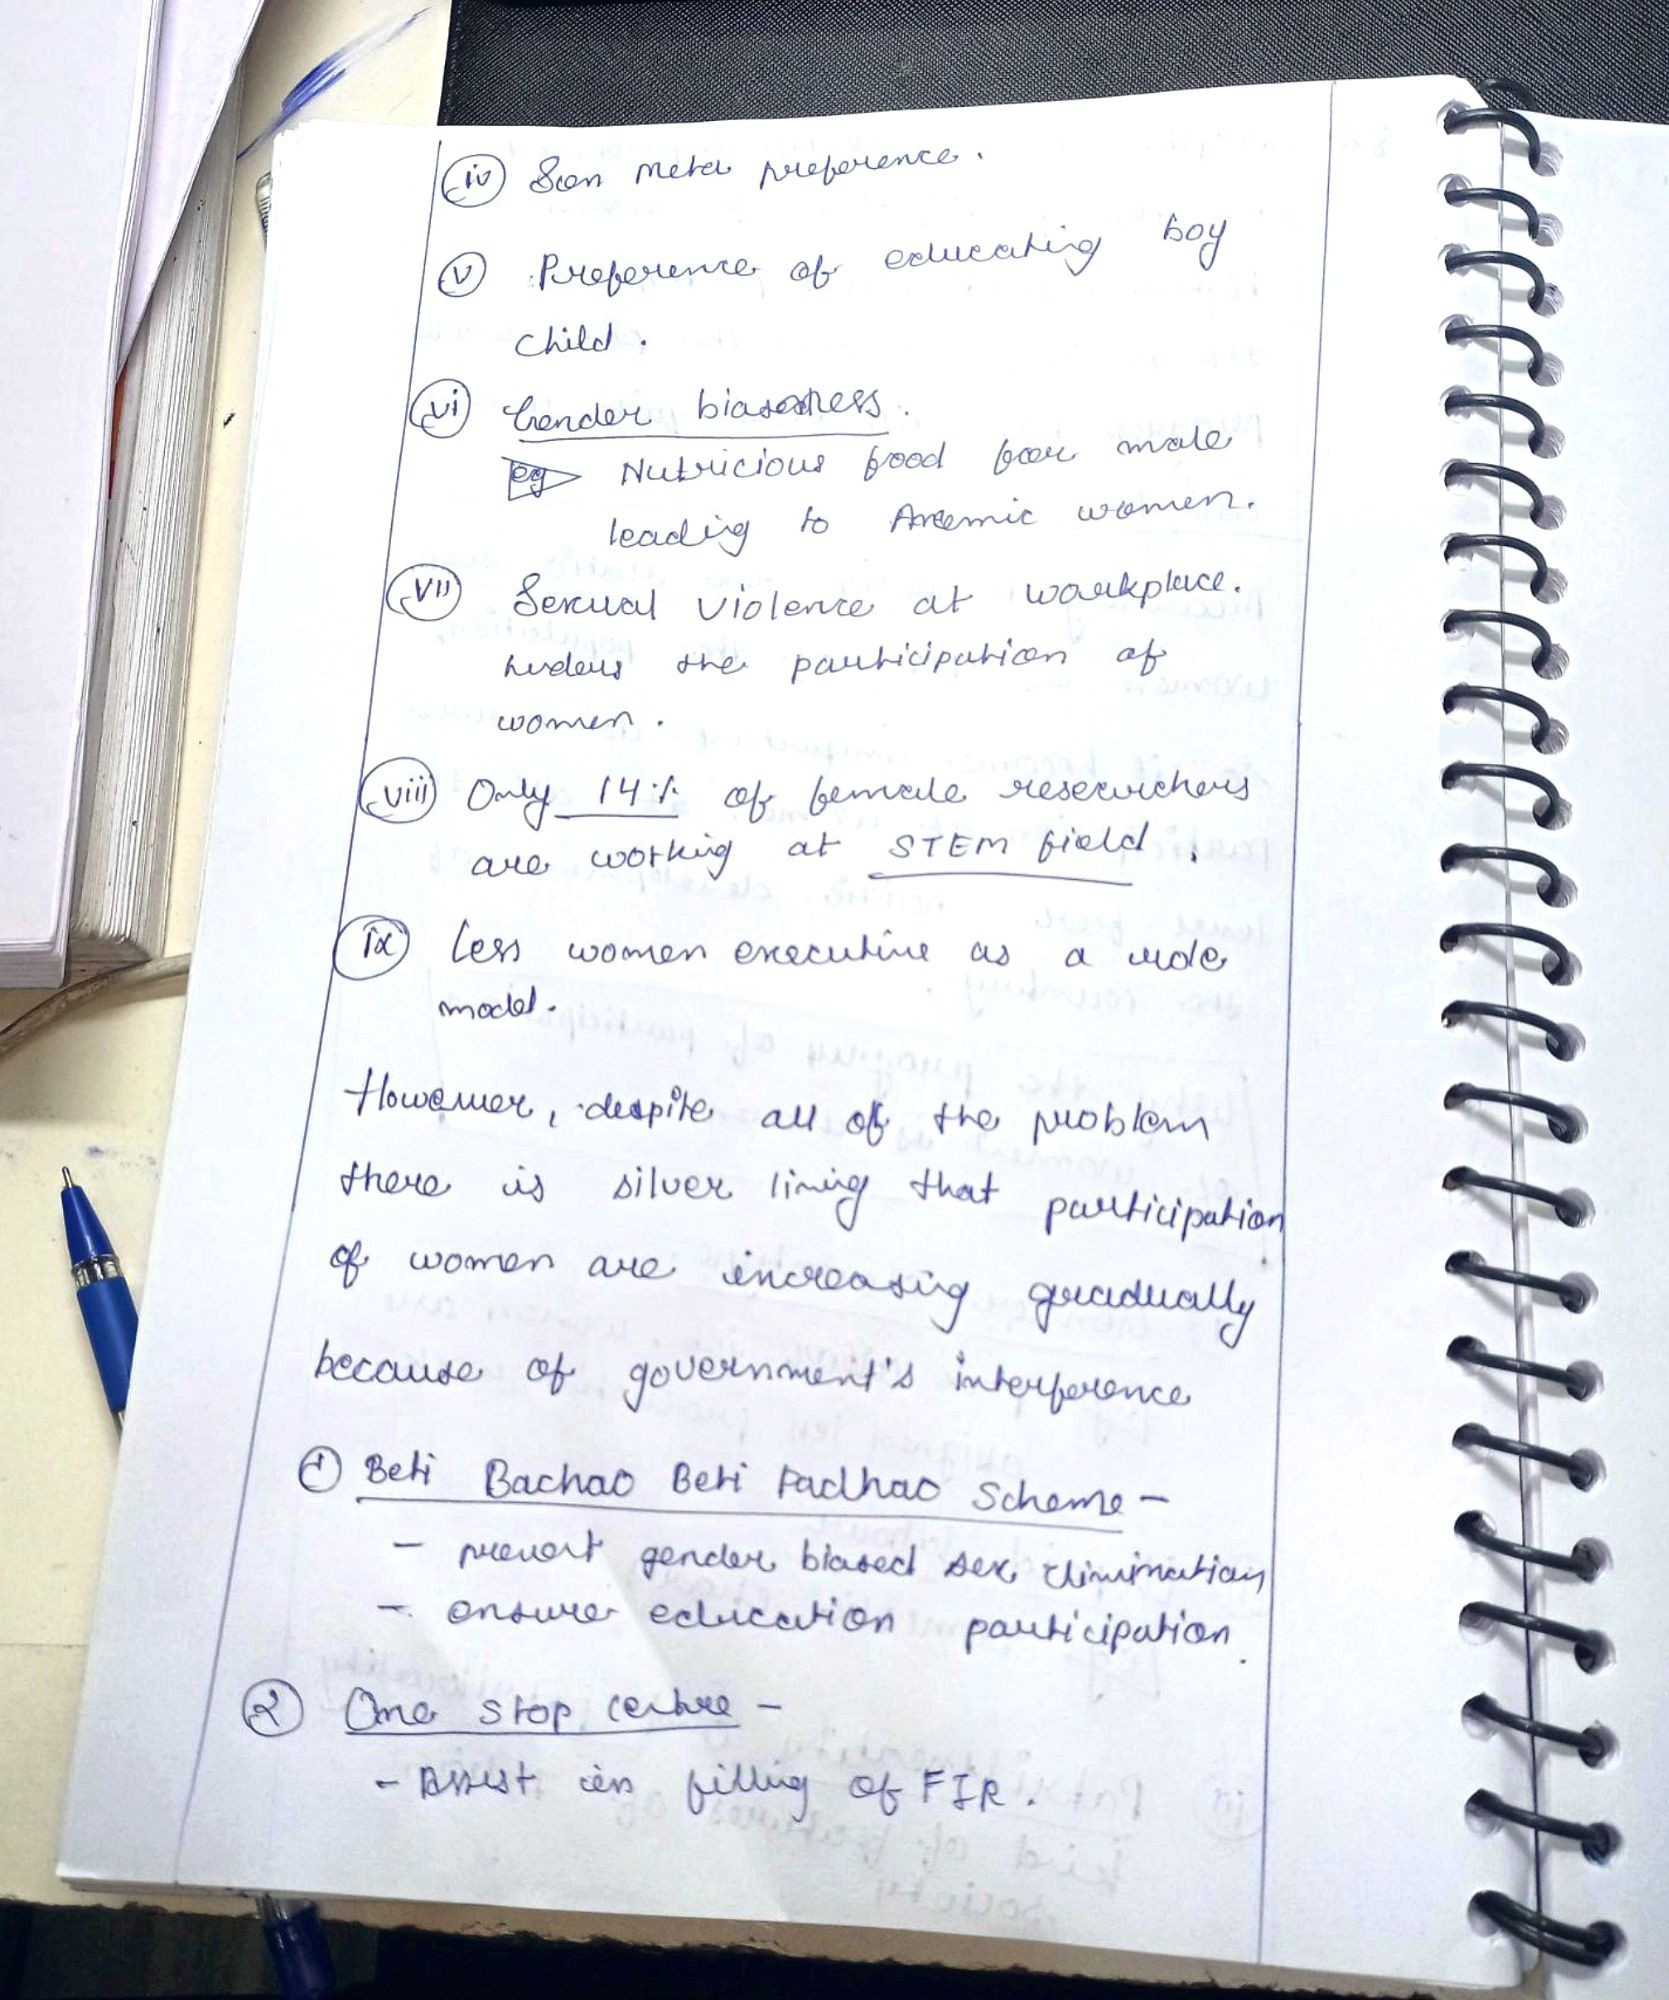 (iv) Son meta preference.
(v) Preference of educating boy
child.
(vi) Gender biasedness.
eg Nutricious food for male
leading to Anemic women.
(vii) Sexual violence at workplace.
hinders the participation of
women.
(viii) Only 14% of female researchers
are working at STEM field.
(ix) Less women executive as a role
model.
However, despite all of the problem
there is silver lining that participation
of women are increasing gradually
because of government's interference
(1) Beti Bachao Beti Padhao Scheme -
- prevent gender biased sex elimination
- ensure education participation.
(2) One stop centre -
- Assist in filling of FIR.